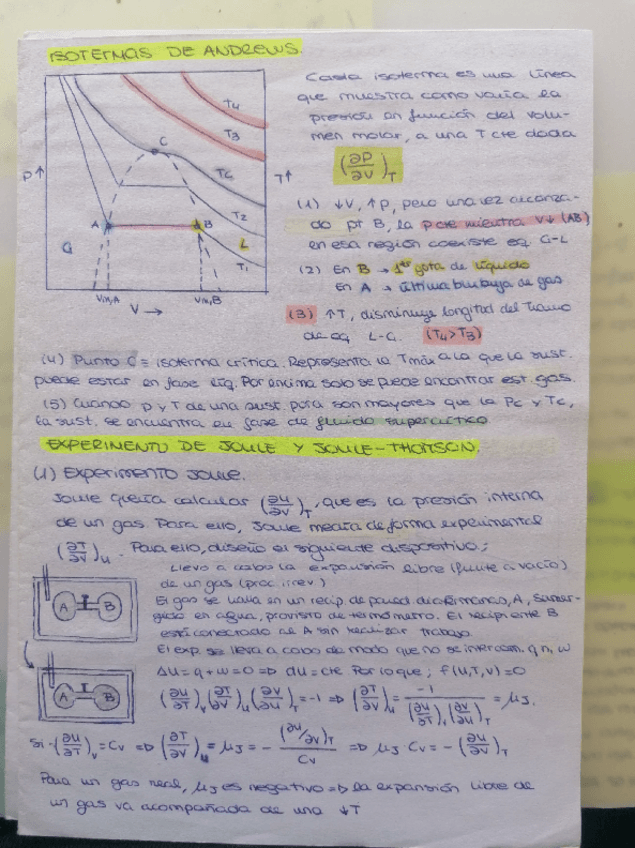 ISOTERMAS DE ANDREWS.
Cada isoterma es una línea
que muestra como varía la
presión en función del volu-
men molar, a una T cte dada
(∂P/∂V)T
P↑
T↑
T4
T3
Tc
T2
T1
C
A
B
G
L
Vm,A
V →
Vm,B
(1) ↓V, ↑p, pero una vez alcanza-
do pt B, la p cte mientra V↓ (AB)
en esa región coexiste eq G-L
(2) En B → 1ª gota de líquido
En A → última burbuja de gas
(3) ↑T, disminuye longitud del tramo
de eq L-G. (T4>T3)
(4) Punto C = isoterma crítica. Representa la Tmáx a la que la sust.
puede estar en fase líq. Por encima solo se puede encontrar est. gas.
(5) Cuando p y T de una sust. pura son mayores que la Pc y Tc,
la sust. se encuentra en fase de fluido supercrítico
EXPERIMENTO DE JOULE Y JOULE-THOMSON.
(1) Experimento Joule.
Joule quería calcular (∂U/∂V)T, que es la presión interna
de un gas. Para ello, Joule medía de forma experimental
(∂T/∂V)U. Para ello, diseñó el siguiente dispositivo;
Llevo a cabo la expansión libre (frente a vacío)
de un gas (proc. irrev)
El gas se halla en un recip. de pared. diatérmanas, A, sumer-
gido en agua, provisto de termómetro. El recipiente B
está conectado al A sin realizar trabajo.
El exp. se lleva a cabo de modo que no se intercam. q ni w
A
B
ΔU = q + w = 0 => dU = cte Por lo que; f(U,T,V) = 0
A
B
(∂U/∂T)V (∂T/∂V)U (∂V/∂U)T = -1 => (∂T/∂V)U = -1/((∂U/∂T)V (∂V/∂U)T) = μJ.
Si (∂U/∂T)V = CV => (∂T/∂V)U = μJ = - (∂U/∂V)T/CV => μJ CV = - (∂U/∂V)T
Para un gas real, μJ es negativo => la expansión libre de
un gas va acompañada de una ↓T